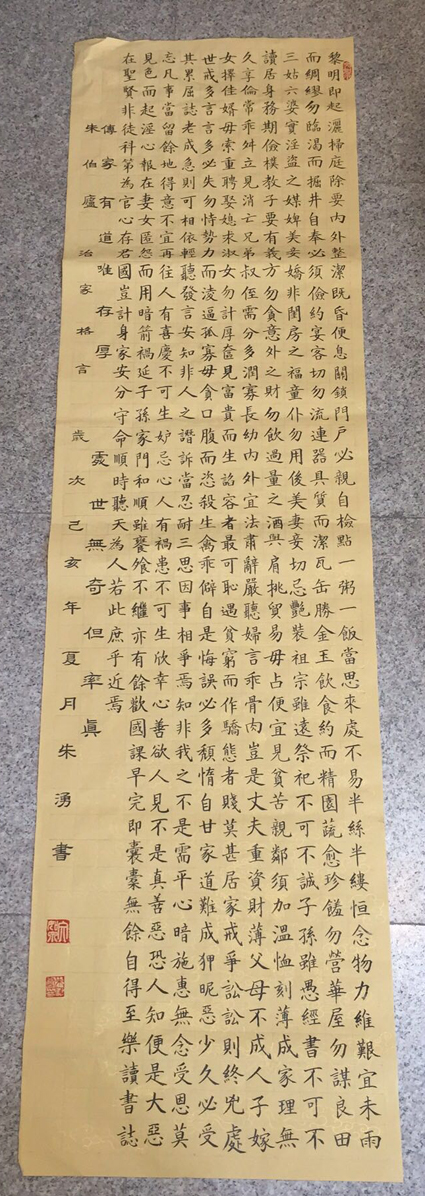 黎明即起灑掃庭除要內外整潔既昏便息關鎖門戶必親自檢點一粥一飯當思來處不易半絲半縷恒念物力維艱宜未雨
而綢繆勿臨渴而掘井自奉必須儉約宴客切勿流連器具質而潔瓦缶勝金玉飲食約而精園蔬愈珍饈勿營華屋勿謀良田
三姑六婆實淫盜之媒婢美妾嬌非閨房之福童仆勿用後美妻妾切忌艷裝祖宗雖遠祭祀不可不誠子孫雖愚經書不可不
讀居身務期儉樸教子要有義方勿貪意外之財勿飲過量之酒與肩挑貿易毋占便宜見貧苦親鄰須加溫恤刻薄成家理無
久享倫常乖舛立見消亡兄弟叔侄需分多潤寡長幼內外宜法肅辭嚴聽婦言乖骨肉豈是丈夫重資財薄父母不成人子嫁
女擇佳婿毋索重聘娶媳求淑女勿計厚奩見富貴而生諂容者最可恥遇貧窮而作驕態者賤莫甚居家戒爭訟訟則終兇處
世戒多言言多必失勿恃勢力而淩逼孤寡毋貪口腹而恣殺生禽乖僻自是悔誤必多頹惰自甘家道難成狎昵惡少久必受
其累屈誌老成急則可相依輕聽發言安知非人之譖訴當忍耐三思因事相爭焉知非我之不是需平心暗施惠無念受恩莫
忘凡事當留餘地得意不宜再往人有喜慶不可生妒忌心人有禍患不可生欣幸心善欲人見不是真善惡恐人知便是大惡
見色而起淫心報在妻女匿怨而用暗箭禍延子孫家門和順雖饔飧不繼亦有餘歡國課早完即囊橐無餘自得至樂讀書誌
在聖賢非徒科第為官心存君國豈計身家安分守命順時聽天為人若此庶乎近焉
傳家有道唯存厚處世無奇但率真
朱伯廬治家格言歲次己亥年夏月朱湧書